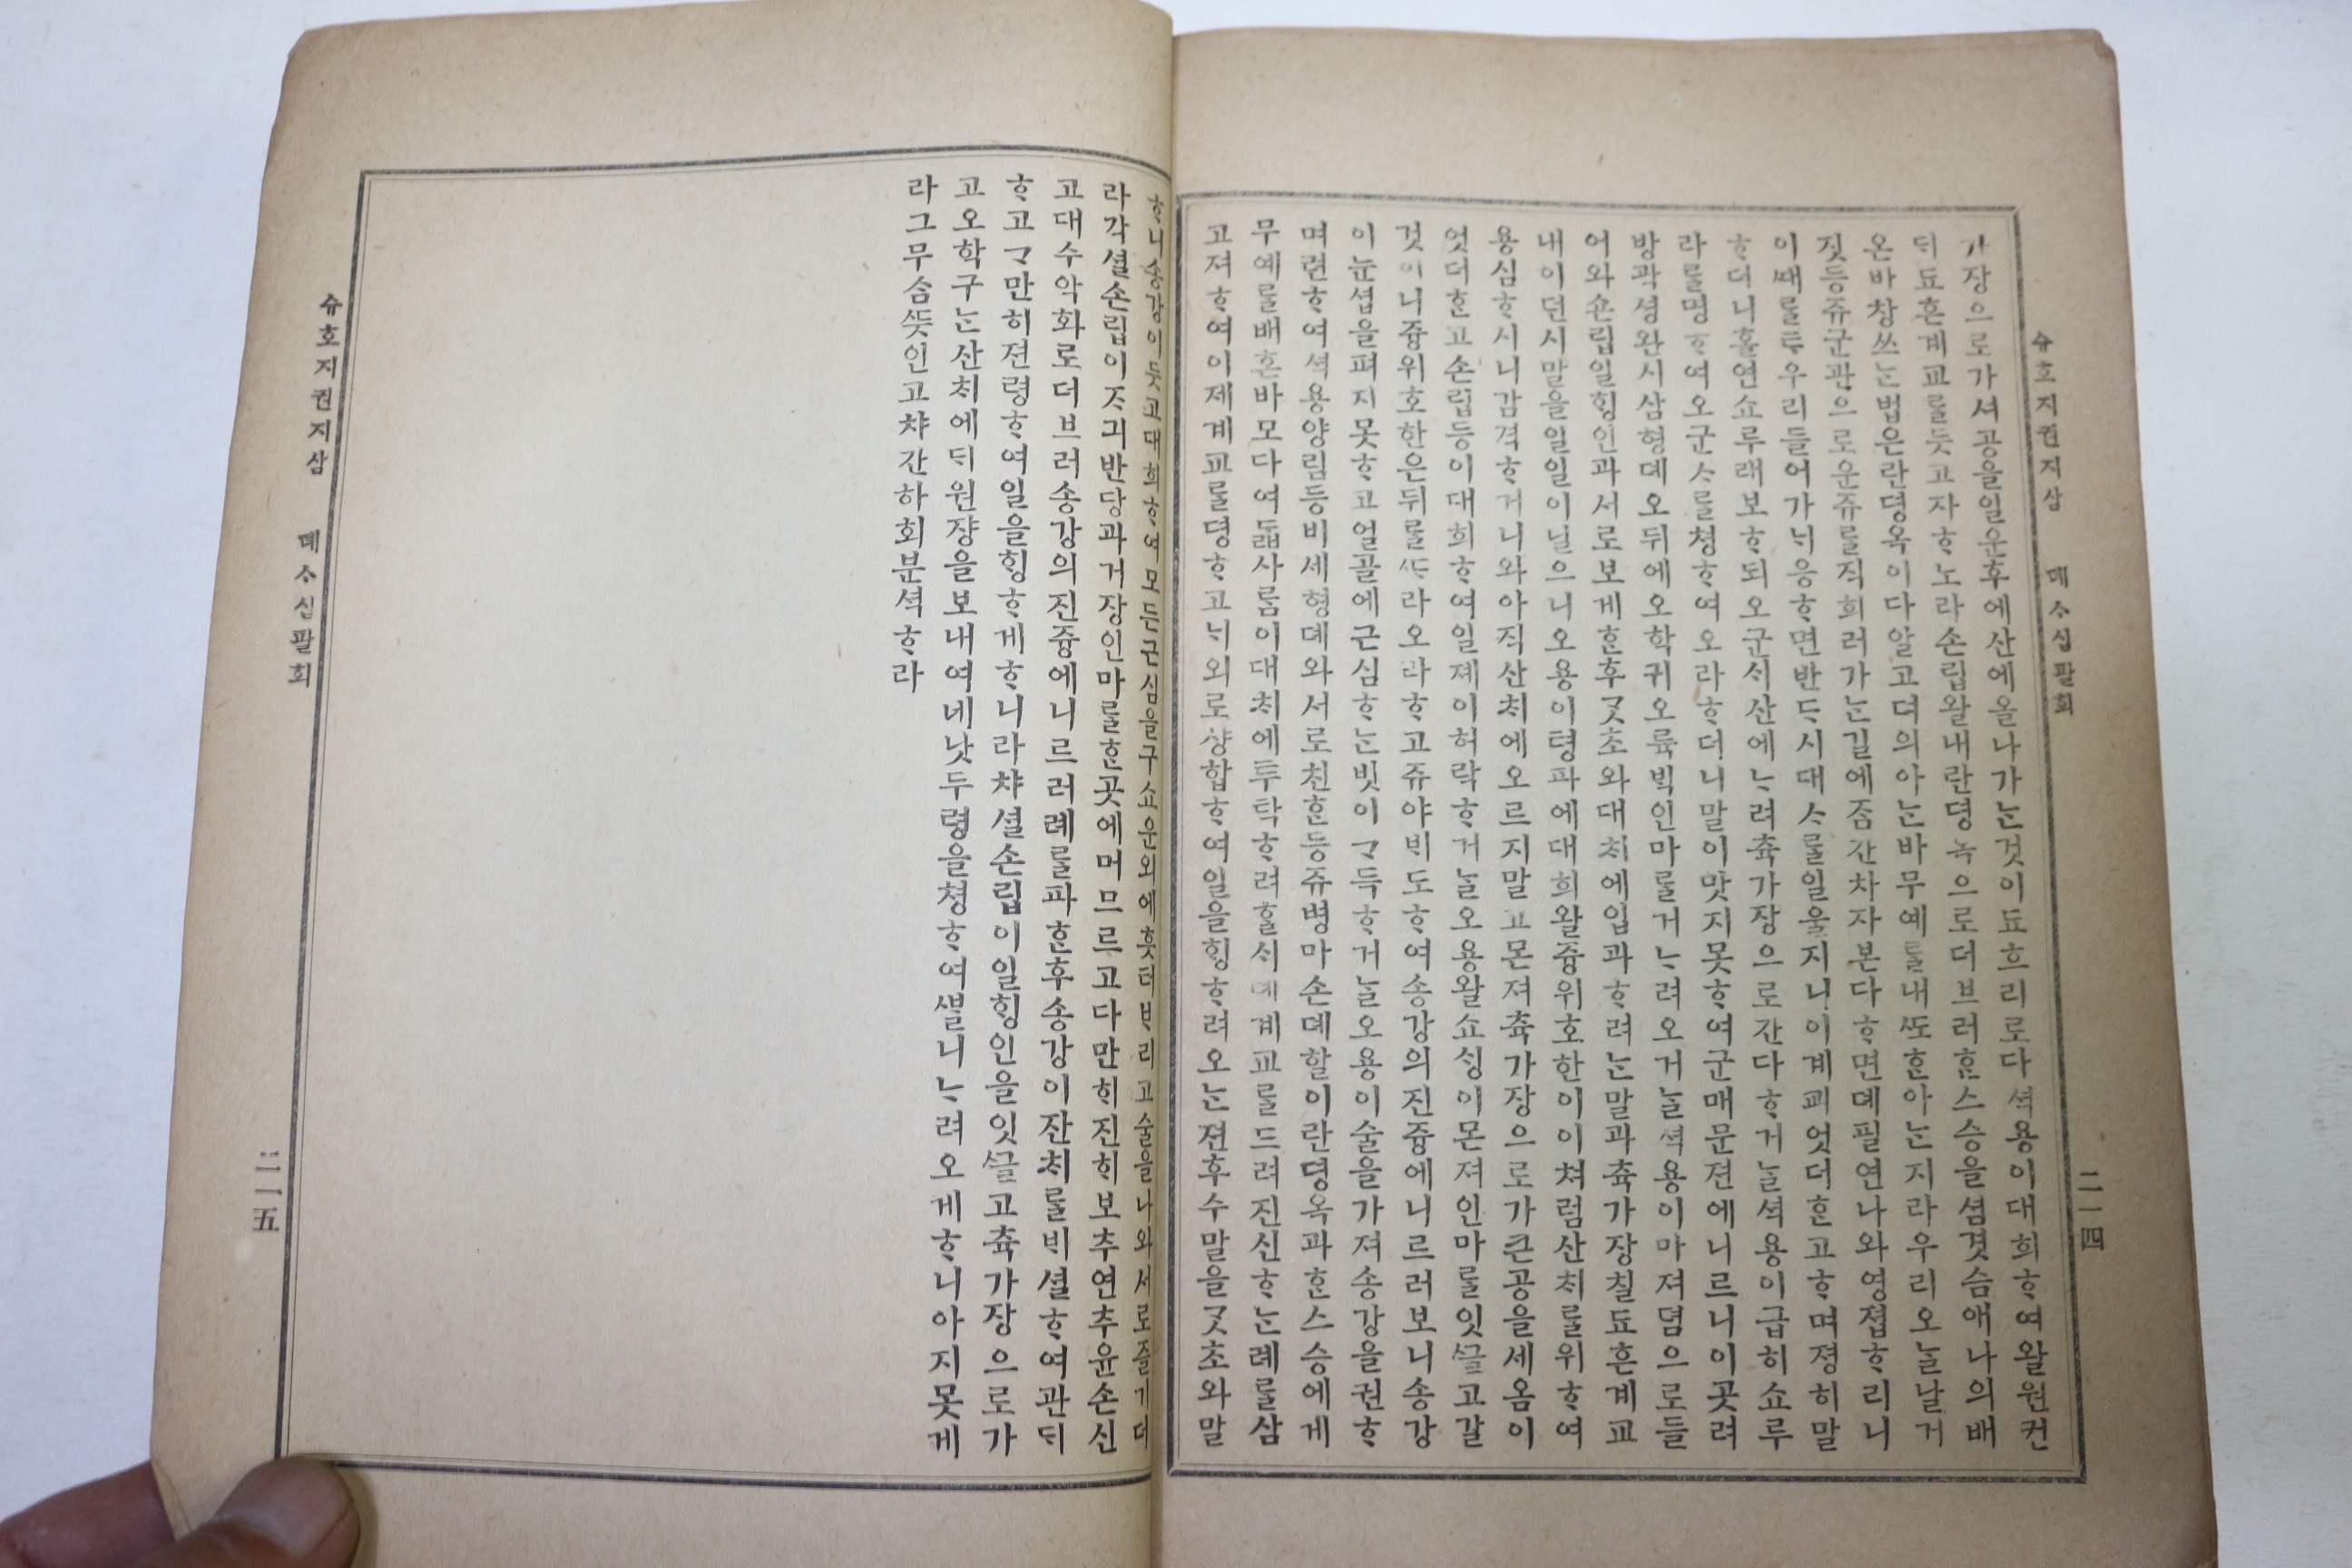 슈호지권지삼 뎨ᄉᆞ십팔회 二一四
가장으로가셔공을일운후에산에올나가ᄂᆞᆫ것이됴흐리로다셕용이대희ᄒᆞ여왈원컨
ᄃᆡ됴흔계교를듯고자ᄒᆞ노라손립왈내란뎡녹으로더브러ᄒᆞᆫ스승을셤겻슴애나의배
온바창쓰ᄂᆞᆫ법은란뎡옥이다알고뎌의아ᄂᆞᆫ바무예를내ᄯᅩᄒᆞᆫ아ᄂᆞᆫ지라우리오ᄂᆞᆯ날거
짓등쥬군관으로운쥬를직희러가ᄂᆞᆫ길에좀간차자본다ᄒᆞ면뎨필연나와영졉ᄒᆞ리니
이때를투우리들어가ᄂᆡ응ᄒᆞ면반ᄃᆞ시대ᄉᆞ를일울지니이계괴엇더ᄒᆞᆫ고ᄒᆞ며졍히말
ᄒᆞ더니홀연쇼루래보ᄒᆞ되오군ᄉᆡ산에ᄂᆞ려츅가장으로간다ᄒᆞ거ᄂᆞᆯ셕용이급히쇼루
라를명ᄒᆞ여오군ᄉᆞ를쳥ᄒᆞ여오라ᄒᆞ더니말이맛지못ᄒᆞ여군매문젼에니르니이곳려
방곽셩완시삼형뎨오뒤에오학귀오륙ᄇᆡᆨ인마를거ᄂᆞ려오거ᄂᆞᆯ셕용이마져뎜으로들
어와손립일ᄒᆡᆼ인과서로보게ᄒᆞᆫ후ᄀᆞᆺ초와대ᄎᆡ에입과ᄒᆞ려ᄂᆞᆫ말과츅가장칠됴흔계교
내이던시말을일일이닐으니오용이텽파에대희왈즁위호한이이쳐럼산ᄎᆡ를위ᄒᆞ여
용심ᄒᆞ시니감격ᄒᆞ거니와아직산ᄎᆡ에오르지말고몬져츅가장으로가큰공을세옴이
엇더ᄒᆞᆫ고손립등이대희ᄒᆞ여일졔이허락ᄒᆞ거ᄂᆞᆯ오용왈쇼ᄉᆡᆼ이몬져인마를잇ᄭᅳᆯ고갈
것이니즁위호한은뒤를ᄯᆞ라오라ᄒᆞ고쥬야ᄇᆡ도ᄒᆞ여송강의진즁에니르러보니송강
이눈셥을펴지못ᄒᆞ고얼골에근심ᄒᆞᄂᆞᆫ빗이ᄀᆞ득ᄒᆞ거ᄂᆞᆯ오용이술을가져송강을권ᄒᆞ
며련ᄒᆞ여셕용양림등비세형뎨와서로친ᄒᆞᆫ등쥬병마손뎨할이란뎡옥과ᄒᆞᆫ스승에게
무예를배혼바모다여듧사ᄅᆞᆷ이대ᄎᆡ에투탁ᄒᆞ려ᄒᆞᆯᄉᆡ계교를드려진신ᄒᆞᄂᆞᆫ례를삼
고져ᄒᆞ여이제계교를뎡ᄒᆞ고ᄂᆡ외로샹합ᄒᆞ여일을ᄒᆡᆼᄒᆞ려오ᄂᆞᆫ젼후수말을ᄀᆞᆺ초와말
ᄒᆞ니송강이듯고대희ᄒᆞ여모든근심을구쇼운외에흣터ᄇᆞ리고술을나와서로즐기더
라각셜손립이ᄌᆞ긔반당과거장인마를ᄒᆞᆫ곳에머므르고다만ᄒᆡ진ᄒᆡ보추연추윤손신
고대수악화로더브러송강의진즁에니르러례를파ᄒᆞᆫ후송강이잔ᄎᆡ를ᄇᆡ셜ᄒᆞ여관ᄃᆡ
ᄒᆞ고ᄀᆞ만히젼령ᄒᆞ여일을ᄒᆡᆼᄒᆞ게ᄒᆞ니라챠셜손립이일ᄒᆡᆼ인을잇ᄭᅳᆯ고츅가장으로가
고오학구ᄂᆞᆫ산ᄎᆡ에ᄃᆡ원쟝을보내여네낫두령을쳥ᄒᆞ여ᄲᆞᆯ니ᄂᆞ려오게ᄒᆞ니아지못게
라그무슴ᄯᅳᆺ인고챠간하회분셕ᄒᆞ라
슈호지권지삼 뎨ᄉᆞ십팔회 二一五